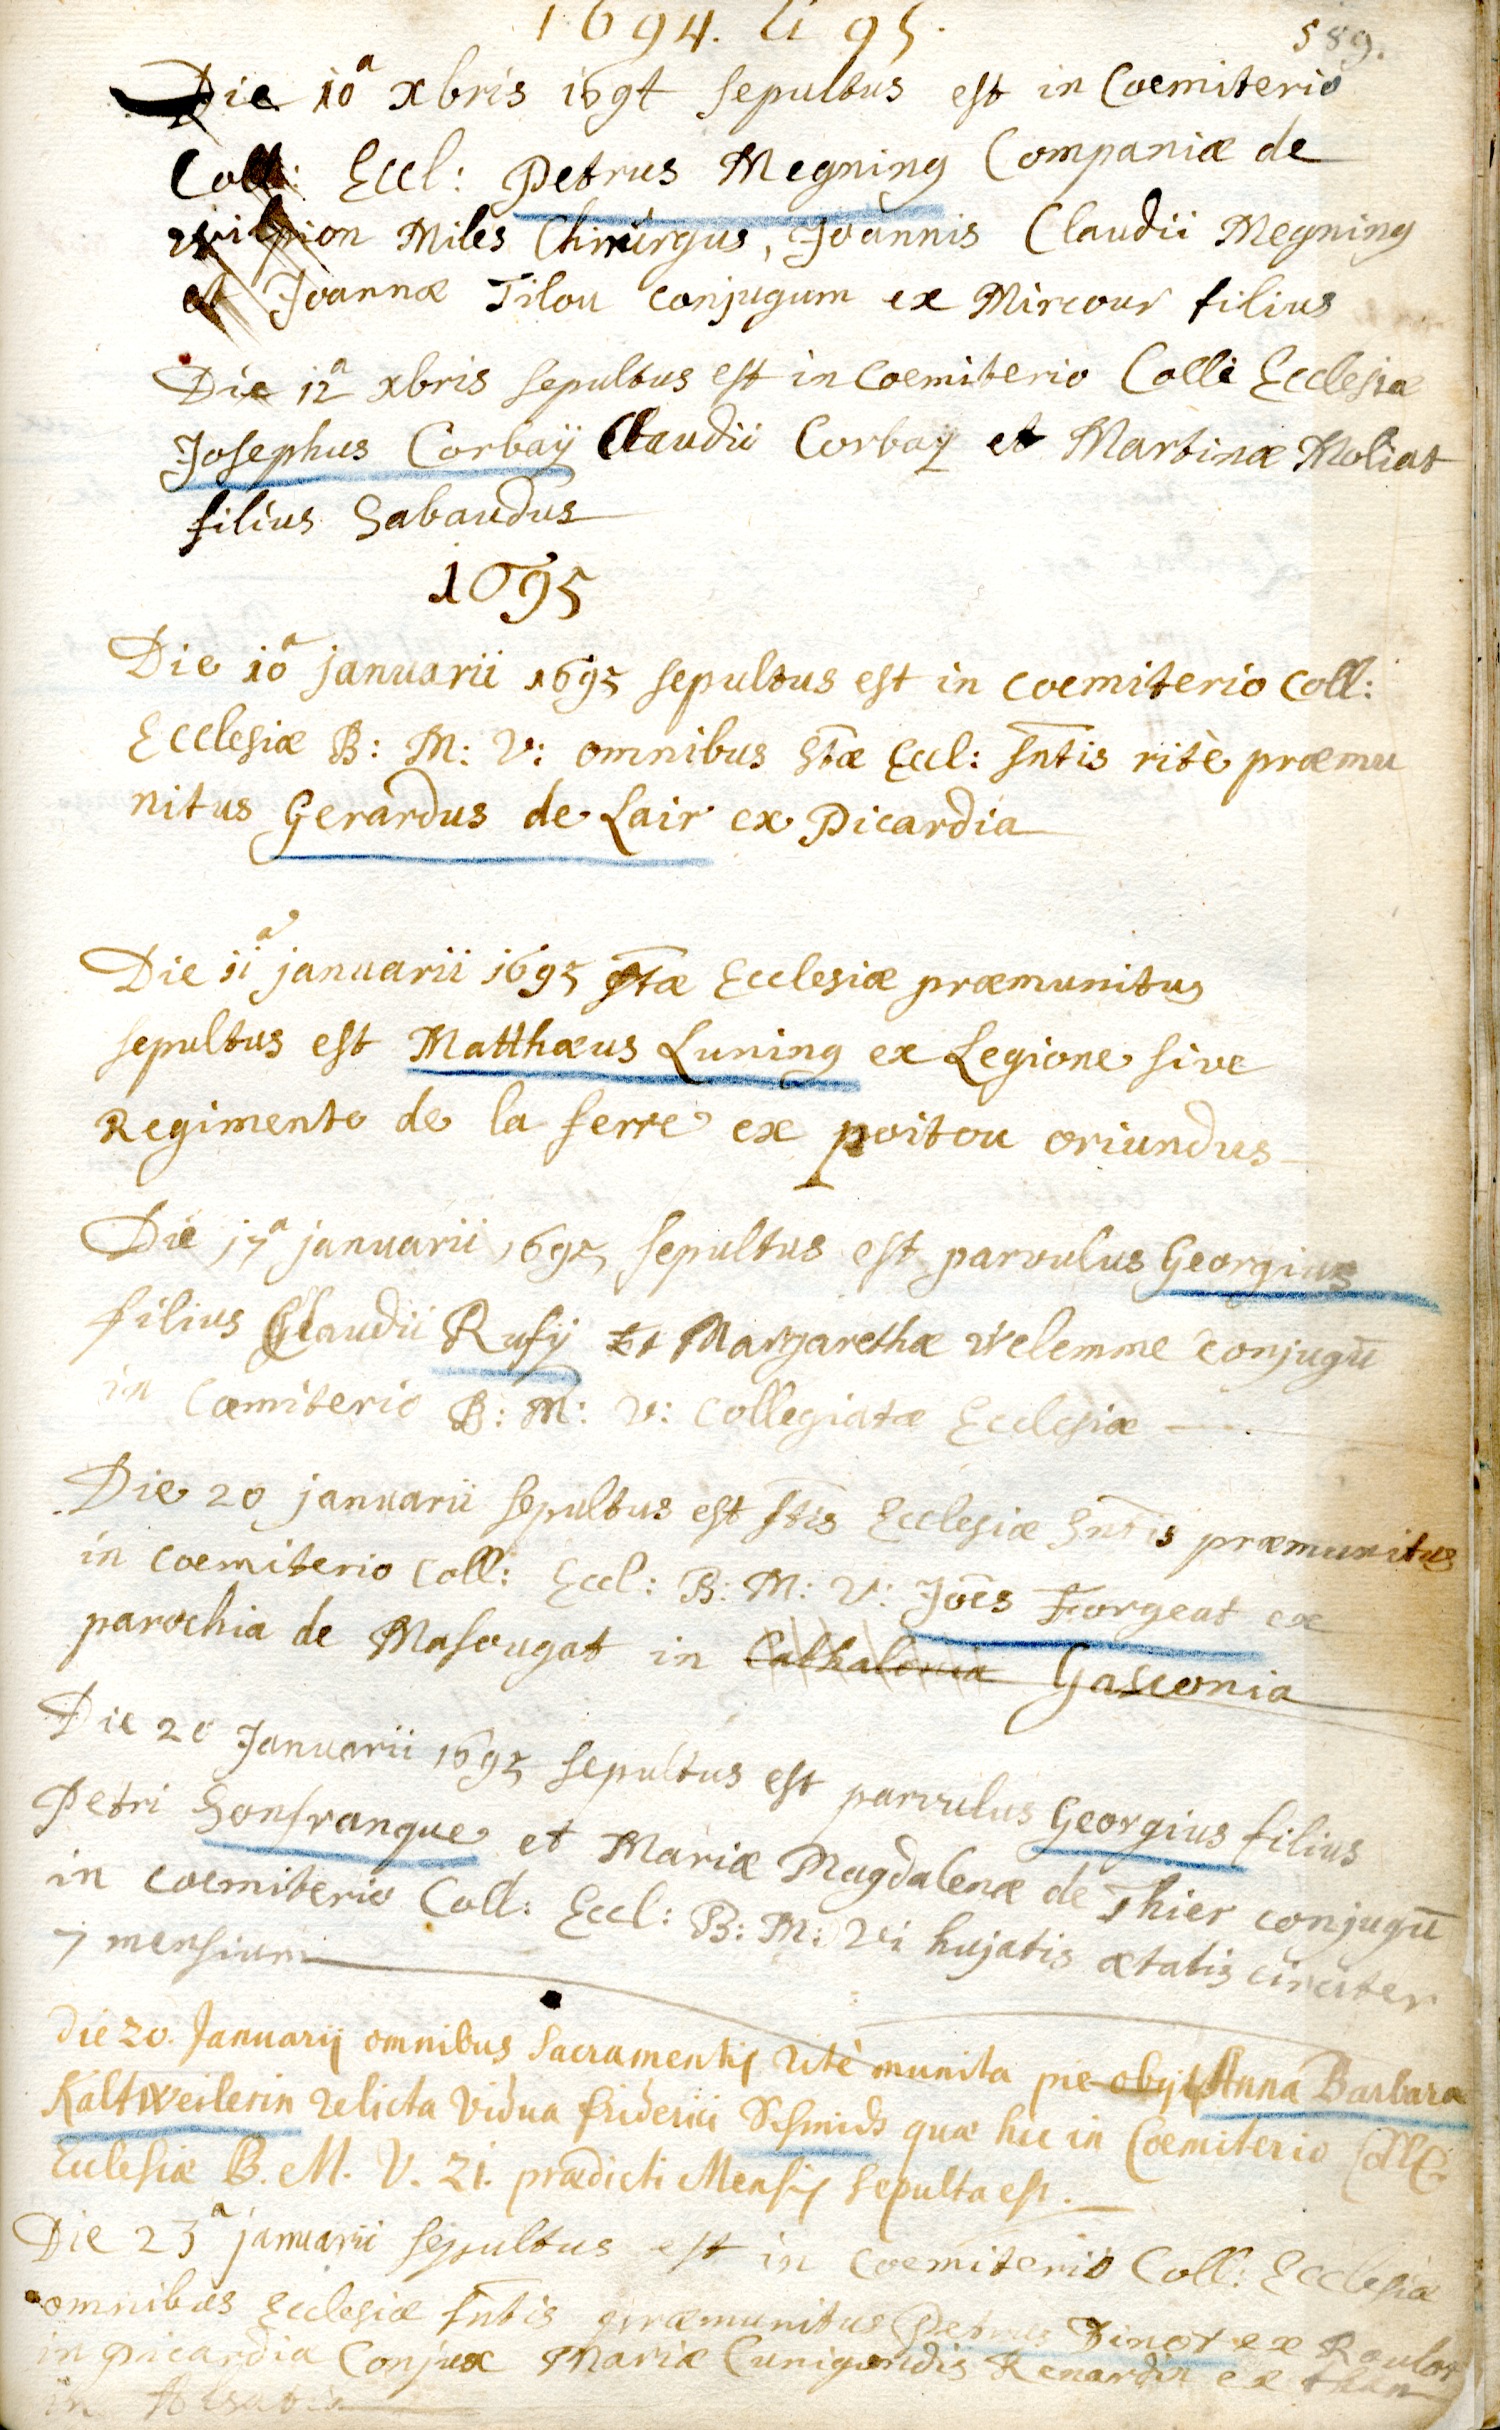 1694. et 95.
589.
Die 10a xbris 1694 sepultus est in Coemiterio
Coll: Eccl: Petrus Megning Companiæ de
Miles Chirurgus, Joannis Claudii Megning
et Joannæ Tilou conjugum ex Mircour filius
Die 12a xbris sepultus est in Coemiterio Colle Ecclesiæ
Josephus Corbaÿ Claudii Corbaÿ et Martinæ Moliat
filius Sabaudus
1695
Die 10a januarii 1695 sepultus est in coemiterio Coll:
Ecclesiæ B: M: V: omnibus Stæ Eccl: Sntis ritè præmu
nitus Gerardus de Lair ex Picardia
Die 11a januarii 1695 Stæ Ecclesiæ præmunitus
sepultus est Matthæus Luning ex Legione sive
Regimento de la ferre ex poitou oriundus
Die 17a januarii 1695 sepultus est parvulus Georgius
filius Claudii Rufÿ et Margarethæ Welemme conjugū
in Coemiterio B: M: V: Collegiatæ Ecclesiæ
Die 20 januarii sepultus est Stis Ecclesiæ Sntis præmunitus
in coemiterio Coll: Eccl: B: M: V: Joēs Forgeat ex
parochia de Masougat in Cathalonia Gasconia
Die 20 Januarii 1695 sepultus est parvulus Georgius filius
Petri Sonfranque et Mariæ Magdalenæ de Thier conjugū
in coemiterio Coll: Eccl: B: M: V: hujatis ætatis circiter
7 mensium
Die 20. Januarij omnibus Sacramentis ritè munita pie obijt Anna Barbara
Kaltweilerin relicta Vidua friderici Schmids quæ hic in Coemiterio Coll:
Ecclesiæ B. M. V. 21. prædicti Mensis sepulta est.
Die 23a januarii sepultus est in Coemiterio Coll: Ecclesiæ
omnibus Ecclesiæ Sntis præmunitus Petrus Finot ex
in picardia Conjux Mariæ Cunigundis Renardin ex than
in Alsatia